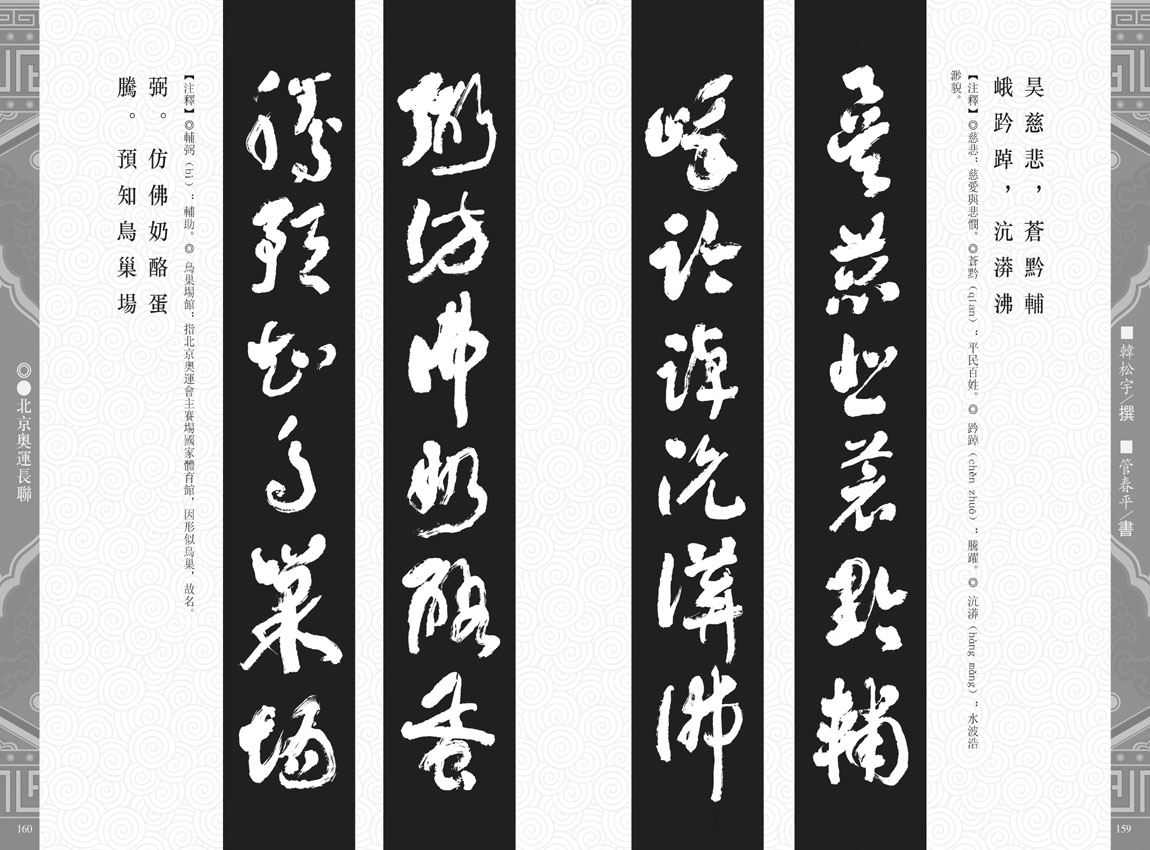 ■韓松宇／撰 ■管春平／書
159
昊慈悲，蒼黔輔
峨趻踔，沆漭沸
【注釋】◎慈悲：慈愛與悲憫。◎蒼黔（qián）：平民百姓。◎趻踔（chěn zhuō）：騰躍。◎沆漭（hàng mǎng）：水波浩
渺貌。
昊慈悲蒼黔輔
峨趻踔沆漭沸
弼仿佛奶酪蛋
騰預知鳥巢場
【注釋】◎輔弼（bì）：輔助。◎鳥巢場館：指北京奧運會主賽場國家體育館，因形似鳥巢，故名。
弼。仿佛奶酪蛋
騰。預知鳥巢場
◎●北京奧運長聯
160